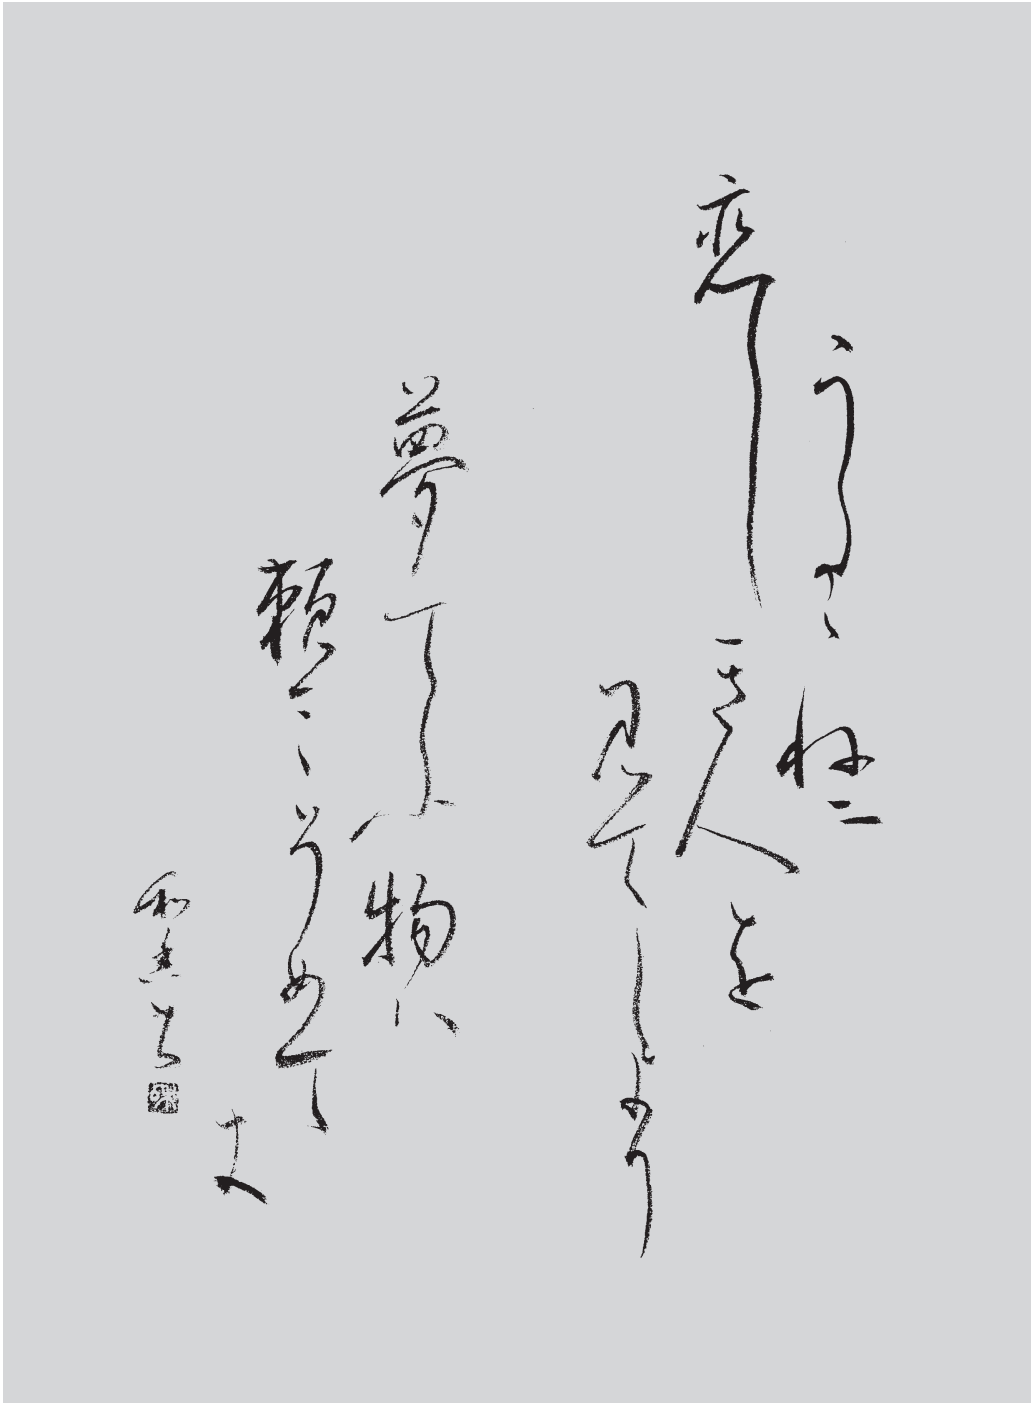 うたゝねに
恋しき人を
見てしより
夢てふ物は
頼みそめて
き